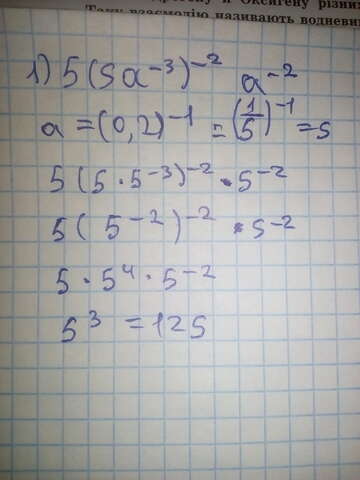 Оксигену різних
Тому взаємодію називають водневи
1) 5(5a⁻³)⁻² a⁻²
a = (0,2)⁻¹ = (1/5)⁻¹ = 5
5(5 · 5⁻³)⁻² · 5⁻²
5( 5⁻² )⁻² · 5⁻²
5 · 5⁴ · 5⁻²
5³ = 125